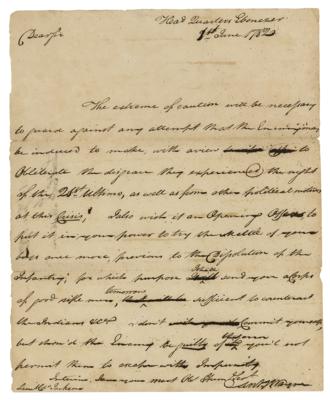 Head Quarters Ebenezer
1st June 1782
Dear Sir
The extreme of caution will be necessary
to guard against any attempt that the Enemy may
be induced to make, with a view to
Obliterate the disgrace they experienced the night
of the 21st Ultimo, as well as from other political motives
at this Crisis;
put it in your power to try the Mettle of your
once more, previous to the Dissolution of the
Infantry; for which purpose I shall send you a Corps
of good rifle men, tomorrow sufficient to counteract
the Indians &c&c don't Commit yourself
but shou'd the Enemy be guilty of you'l not
permit them to escape with Impunity
Interim I am your most Obt Humbl Sert
Ant. Wayne